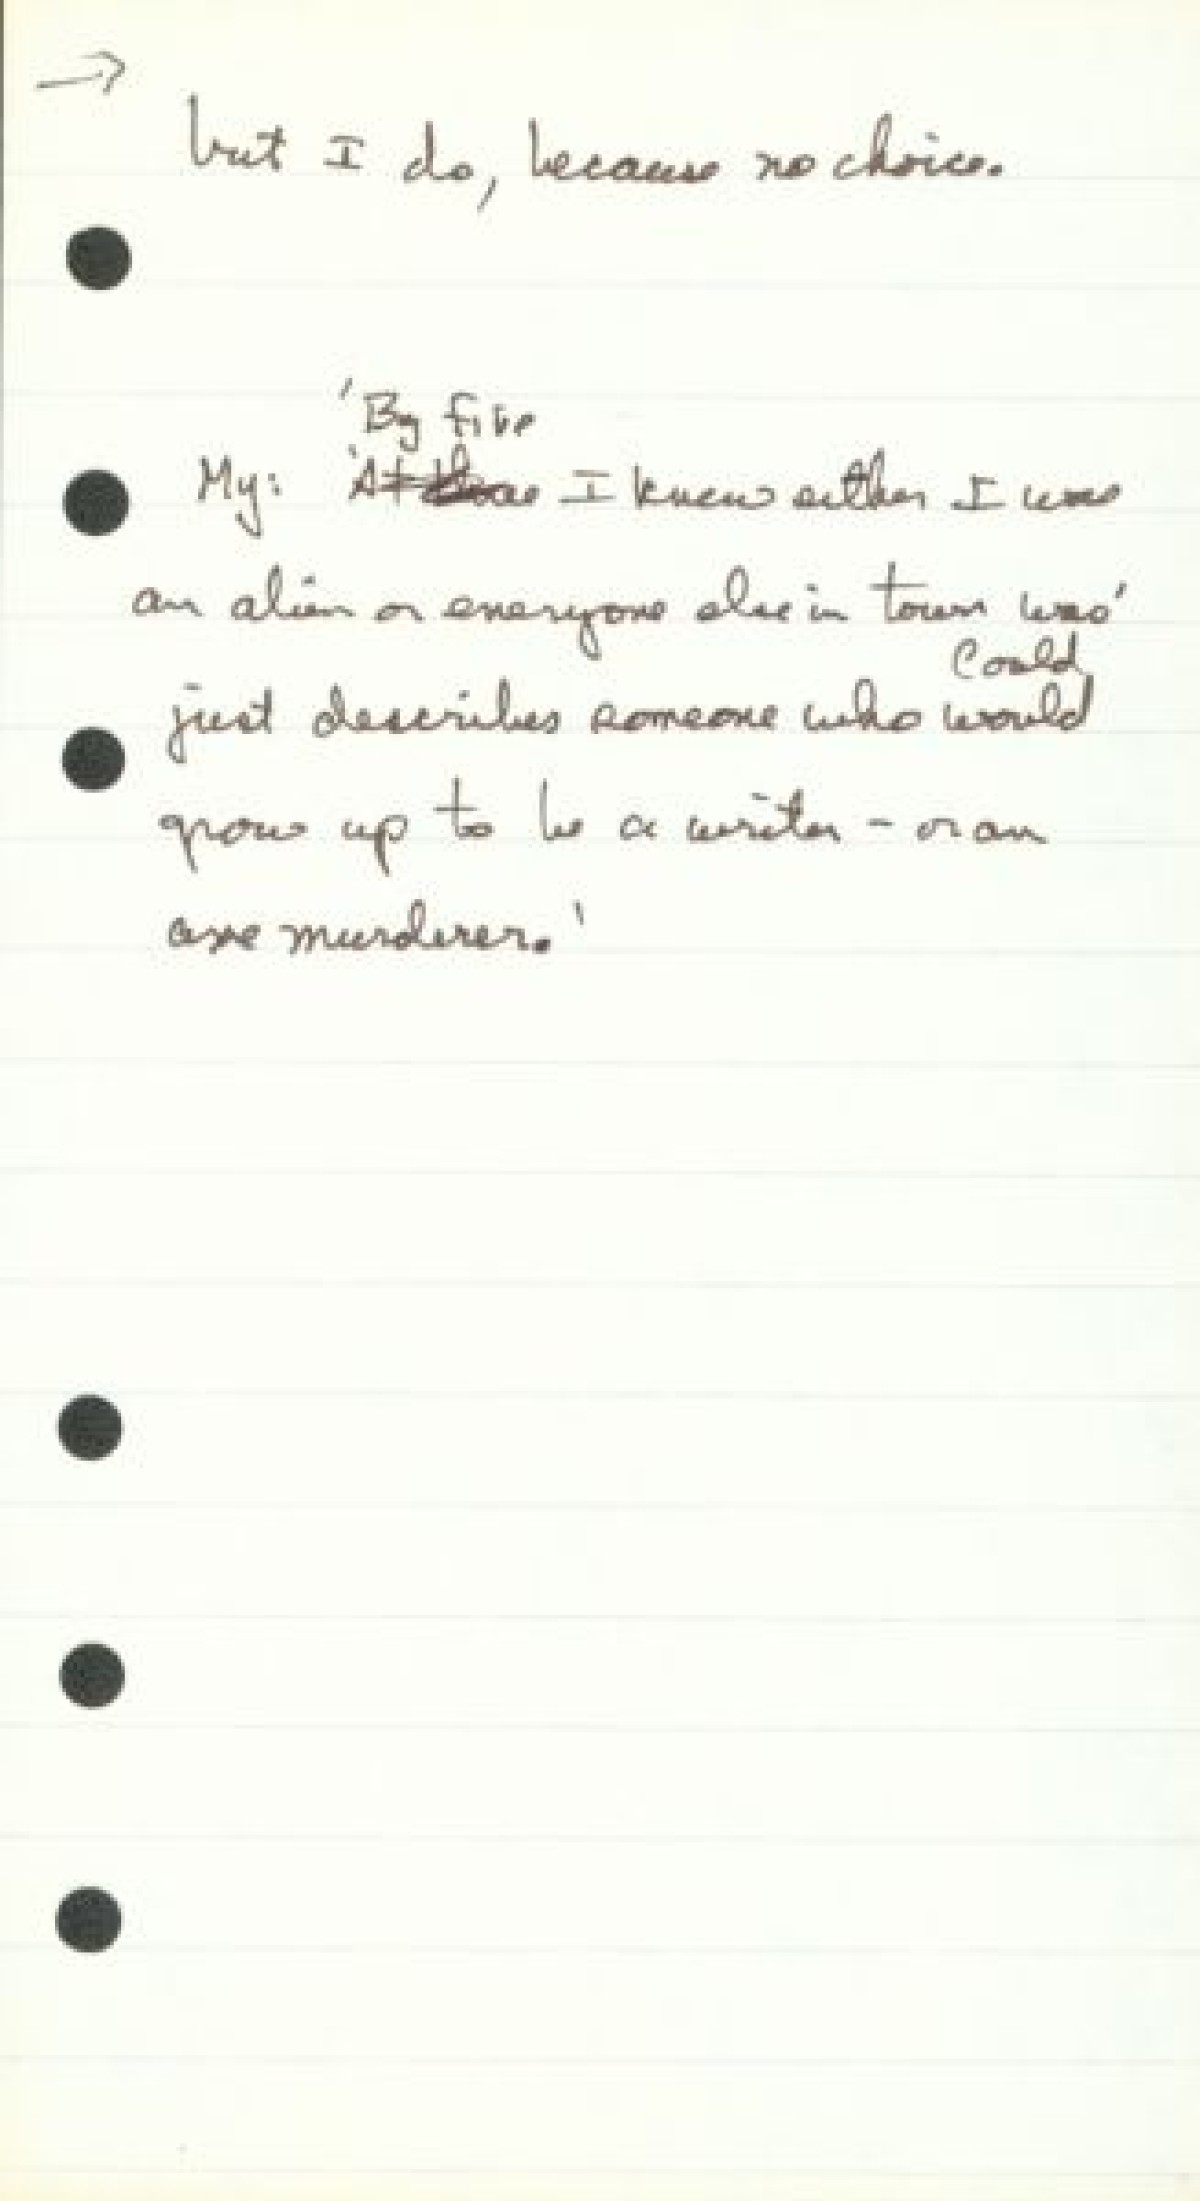 →
but I do, because no choice.
'By five
My: 'At three I knew either I was
an alien or everyone else in town was'
could
just describes someone who would
grow up to be a writer - or an
axe murderer.'